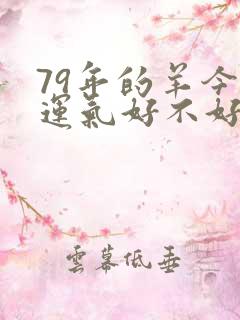 79年的羊今
運氣好不好
雲幕低垂